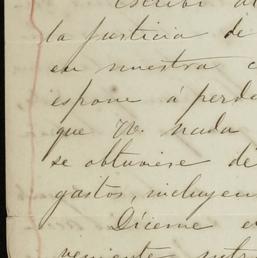 Escribí al
la justicia de
en nuestra c
espone á perde
que V. nada
se obtuviese de
gastos, incluyen
Díceme e
veniente